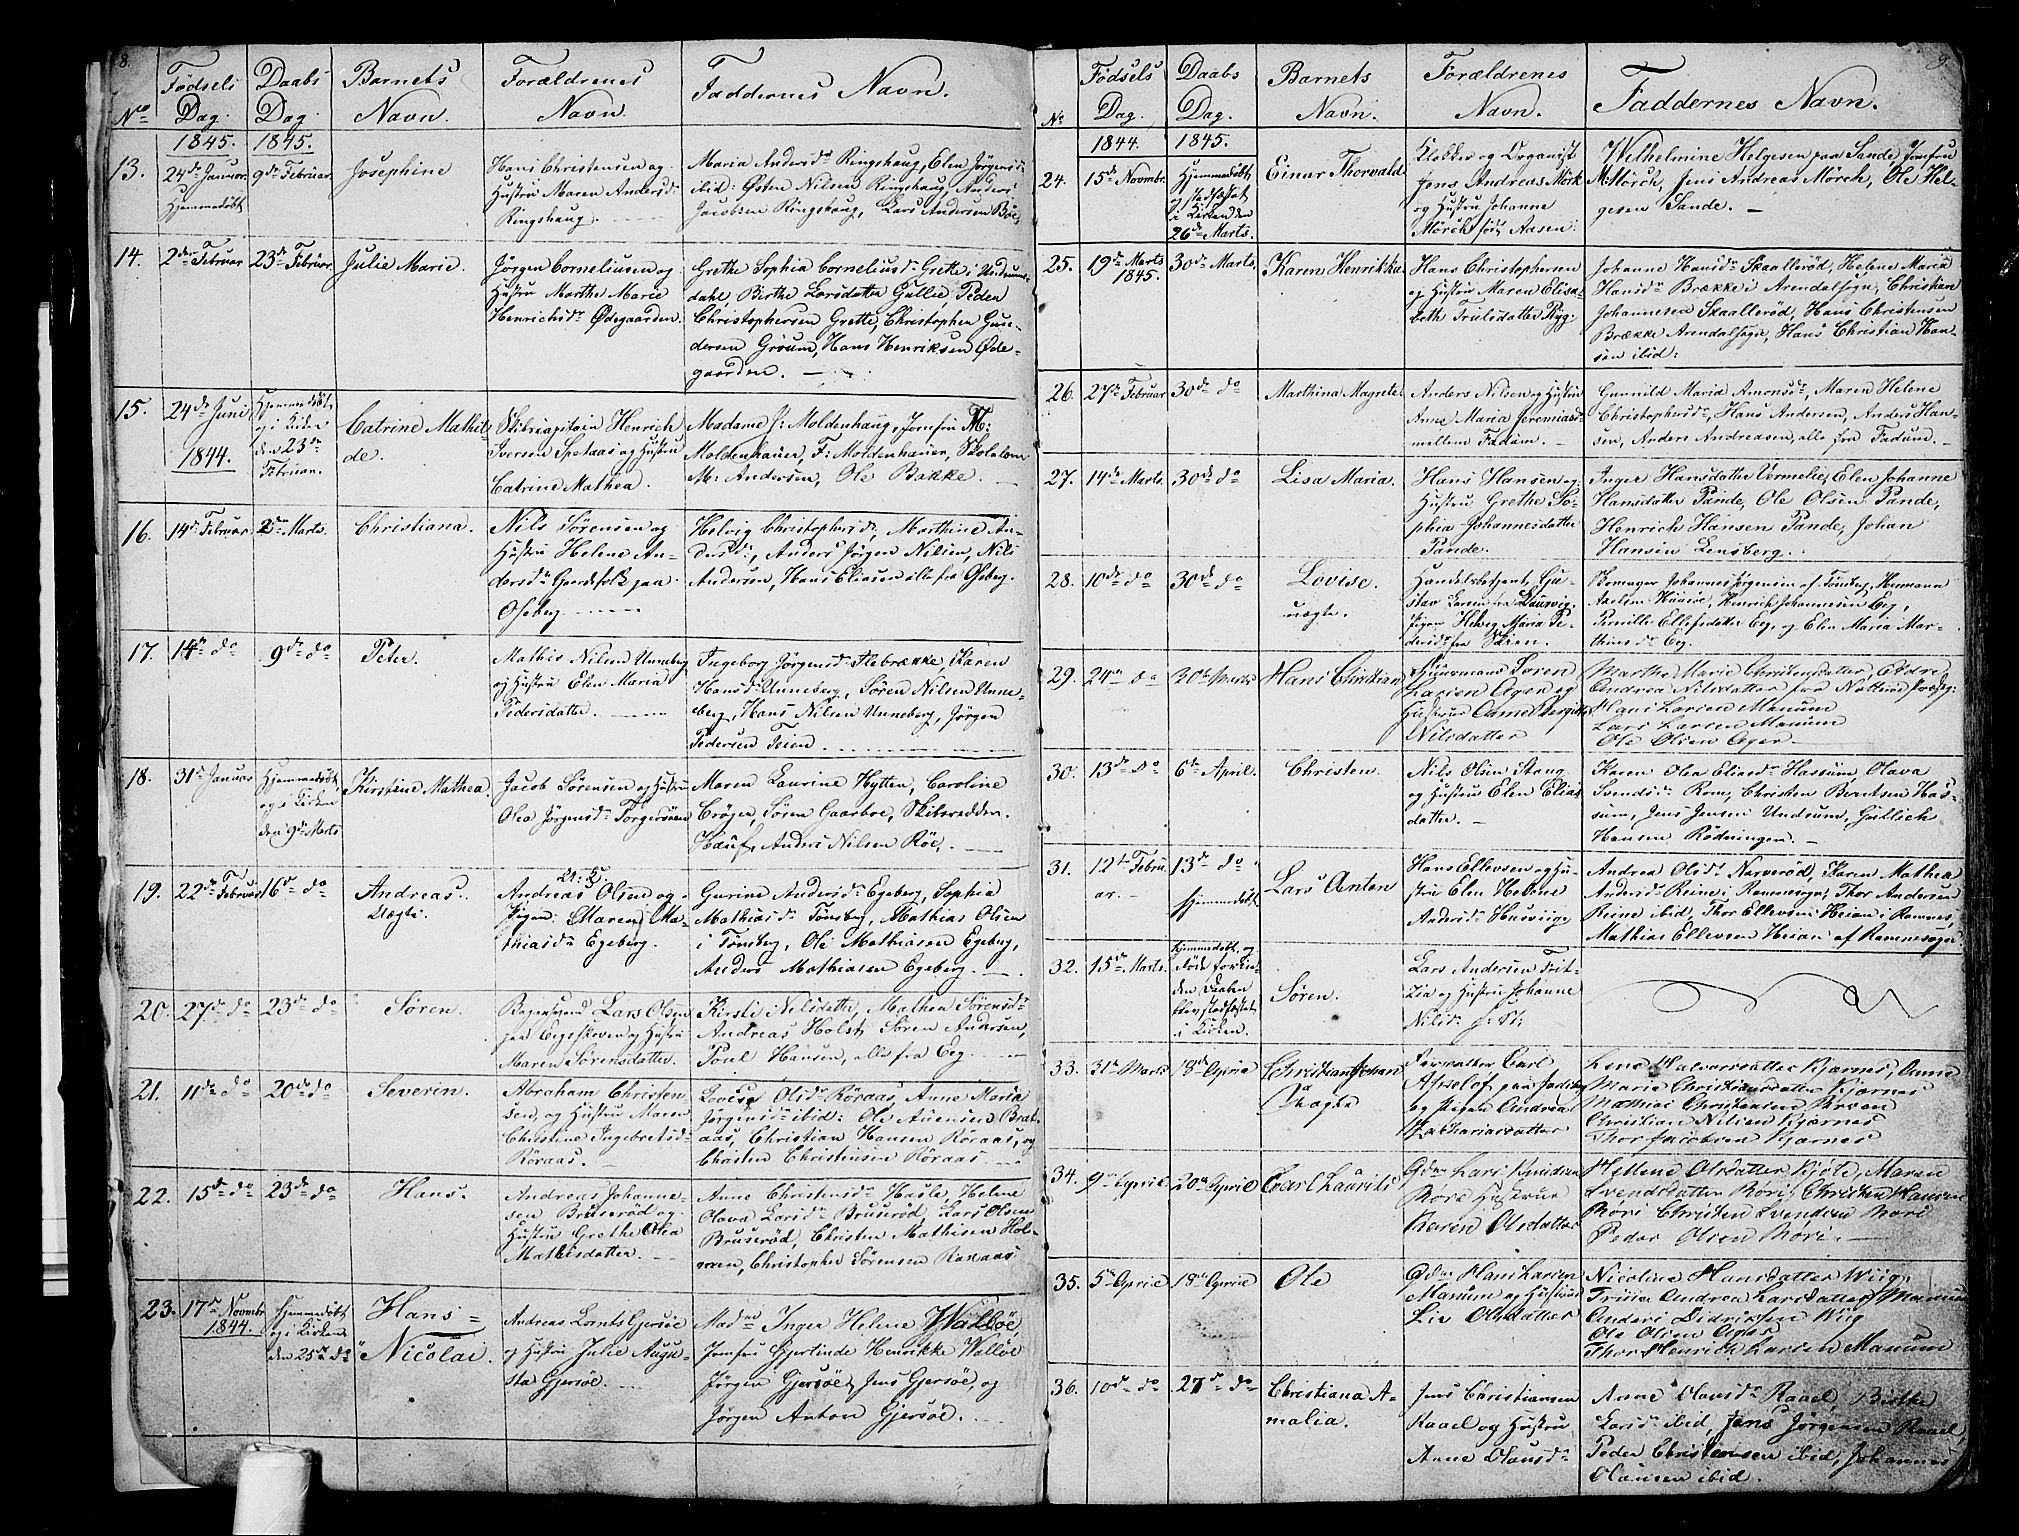 8.
No
Fødsels
Dag.
Daabs
Dag.
Barnets
Navn.
Forældrenes
Navn.
Faddernes Navn.
1845.
1845.
13.
24de Januar
Hjemmedøbt
9de Februar
Josephine
Hans Christensen og
Hustru Maren Andersd.
Ringshaug.
Maria Andersd. Ringshaug, Elen Jørgensd.
ibid: Østen Nilsen Ringshaug, Anders
Jacobsen Ringshaug, Lars Andersen Bøe
14.
2den Februar
23de Februar
Julie Marie.
Jørgen Corneliusen og
Hustru Marthe Marie
Henrichsd. Ødegaarden.
Grethe Sophia Corneliusd. Grette i Undrums-
dahl, Birthe Larsdatter Gullie, Peder
Christophersen Grette, Christopher Gun-
dersen Grøum, Hans Henriksen Øde-
gaarden.
15.
24de Juni
1844.
Hjemmedøbt
og i Kirken
den 23de
Februar.
Catrine Mathil-
de.
Skibscapitain Henrich
Iversen Spetaas og Hustru
Catrine Mathea.
Madame C: Moldenhaug, Jomfru M:
Moldenhauer, F: Moldenhauer, Skolelærer
M: Andersen, Ole Bakke.
16.
14de Februar
2den Marts.
Christiana.
Nils Sørensen og
Hustru Helene An-
dersd. Gaardfolk paa
Oseberg.
Helvig Christophersd., Marthine An-
dersd., Anders Jørgen Nilsen, Nils
Andersen, Hans Eliasen alle fra Oseberg.
17.
14de do
9de do
Peter.
Mathis Nilsen Unneberg
og Hustru Elen Maria
Pedersdatter.
Ingeborg Jørgensd. Askebrække, Karen
Hansd. Unneberg, Søren Nilsen Unne-
berg, Hans Nilsen Unneberg, Jørgen
Pedersen Teien
18.
31te Januar
Hjemmedøbt
og i Kirken
den 9de Marts
Kirstine Mathea.
Jacob Sørensen og Hustru
Olea Jørgensd. Torgersøen
Maren Laurine Hytten, Caroline
Crøger, Søren Gaarboe, Skibsredder
Hauf, Anders Nilsen Røe,
19.
22de Februar
16de do
Andreas.
Uægte.
Andreas Olsen og
Pigen Maren Ma-
thiasd. Egeberg.
Gurine Andersd. Egeberg, Sophia
Mathiasd. Tønsberg, Mathias Olsen
i Tønsberg, Ole Mathiasen Egeberg,
Anders Mathiasen Egeberg.
20.
27de do
23de do
Søren.
Lars Olsen
paa Eegeskoven og Hustru
Maren Sørensdatter.
Kirsti Nilsdatter, Mathea Sørensd.
Andreas Holst, Søren Andersen,
Poul Hansen, alle fra Eeg.
21.
11de do
20de do
Severin.
Abraham Christen-
sen, og Hustru Maren
Christine Ingebretsd.
Røraas.
Lovise Olsd. Røraas, Anne Maria
Jørgensd. ibid: Ole Auensen Brat-
aas, Christian Hansen Røraas, og
Christen Christensen Røraas
22.
15de do
23de do
Hans.
Andreas Johanne-
sen Bruserød og
Hustru Grethe Olea
Mathisdatter.
Anne Christensd. Hasle, Helene
Olava Larsd. Bruserød, Lars Olsen
Bruserød, Christen Mathisen Hol-
men, Christopher Sørensen Raraas
23.
17de Novmbr
1844.
Hjemmedøbt
og i Kirken
den 25de do
Hans=
Nicolai.
Andreas Lants Gjersøe
og Hustru Julie Augu-
sta Gjersøe.
Madme Inger Helene Walløe,
Jomfru Gjertinde Henrikke Walløe
Jørgen Gjersøe, Jens Gjersøe, og
Jørgen Anton Gjersøe.
9.
No
Fødsels
Dag.
Daabs
Dag.
Barnets
Navn.
Forældrenes
Navn.
Faddernes Navn.
1844.
1845.
24.
15de Novmbr.
Hjemmedøbt
og stadfæstet
i Kirken den
26de Marts.
Einar Thorvald
Klokker og Organist
Jens Andreas Mørk
og Hustru Johanne
Mørch født Aasen.
Wilhelmine Helgesen paa Sande, Jomfru
M: Mørch, Jens Andreas Mørch, Ole Hel-
gesen Sande.
25.
19de Marts
1845.
30de Marts.
Karen Henrikka
Hans Christophersen
og Hustru Maren Elisa-
beth Trulsdatter Ryg.
Johanne Hansd. Skaallerød, Helene Maria
Hansd. Brække i Arendalsogn, Christian
Johannesen Skaallerød, Hans Christensen
Brække Arendalsogn, Hans Christian Han-
sen ibid:
26.
27de Februar
30de do
Mathina Magrete.
Anders Nilsen og Hustru
Anne Maria Jeremiasd.
mellem Fadum.
Gunnild Maria Amonsd., Maren Helene
Christophersd., Hans Andersen, Anders Han-
sen, Anders Andreasen, alle fra Fadum.
27.
14de Marts.
30de do
Lisa Maria.
Hans Hansen og
Hustru Grethe So-
phia Johannesdatter
Pande.
Inger Hansdatter Vermelie, Elen Johanne
Hansdatter Pande, Ole Olsen Pande,
Henrich Hansen Pande, Johan
Hansen Lensberg.
28.
10de do
30de do
Lovise.
uægte.
Handelsbetjent, Gu-
stav Larsen fra Laurvig,
Pigen Helvig Maria Pe-
dersd. fra Skien.
Bomager Johannes Jørgensen af Tønsberg, Hermann
Axelsen Husøe, Henrich Johannesen Eeg,
Pernille Ellefsdatter Eeg, og Elen Maria Mar-
thinsd. Eeg.
29.
24de do
30te Marts
Hans Christian
Huusmand Søren
Larsen Ager og
Hustrue Anne Bergitte
Nilsdatter
Marthe Marie Christensdatter,
Andrea Nilsdatter fra Nøtterøe Præstg:
Hans Larsen Manum
Lars Larsen Manum
Ole Olsen Ager
30.
13de do
6te April.
Christen.
Nils Olsen Stang
og Hustru Elen Elias-
datter.
Karen Olea Eliasd. Hassum, Olava
Svendsd. Rom, Christen Berntsen Has-
sum, Jens Jensen Undrum, Gutlich
Hansen Rødningen.
31.
12te Febru
ar.
13de do
Hjemmedøbt
Lars Anten
Hans Ellevsen og Hu-
stru Elen Helene
Andersd. Husviige
Andrea Olsd. Narverød, Karen Mathea
Andersd. Reine i Ramnesogn, Thor Andersen
Reine ibid, Thor Ellevsen Heian i Ramnes,
Mathias Ellevsen Heian af Ramnesogn.
32.
15de Marts.
Hjemmedøbt, og
døde forin-
den Daaben
blev stadfæstet
i Kirken.
Søren.
Lars Andersen Trit-
Zia og Hustru Johanne
Nilsd.
33.
31te Marts
18de April
Christian Johan
Uægte
Forvalter Carl
paa
og Pigen Andrea
Zachariasdatter
Lene Halvorsdatter Kjærnes, Anne
Marie Christiansdatter Kjærnes
Mathias Christensen Berven
Christian Nilsen Kjærnes
Thor Jacobsen Kjærnes
34.
9de April
20de April
Carl Laurits
Gdm Lars Knudsen
Røri Hustrue
Karen Olsdatter
Hellene Olsdatter Kjøle, Maren
Svendsdatter Røri, Christen Hansen
Røri Christen Svendsen Røri
Peder Olsen Røri.
35.
5te April
18de April
Ole
Gdm Hans Larsen
Manum og Hustrue
Liv Olsdatter
Nicoline Hansdatter Wiig,
Trine Andrea Larsdatter Manum
Anders Didriksen Wiig
Ole Olsen Ager
Thor Henrich Larsen Manum
36.
10de do
27de do
Christiana A-
malia.
Jens Christiansen
Raael og Hustru
Anne Olausd.
Anne Hansd. Raael, Birthe
Larsd. ibid, Jens Jørgensen Raael,
Peder Christensen ibid, Johannes
Clausen ibid.